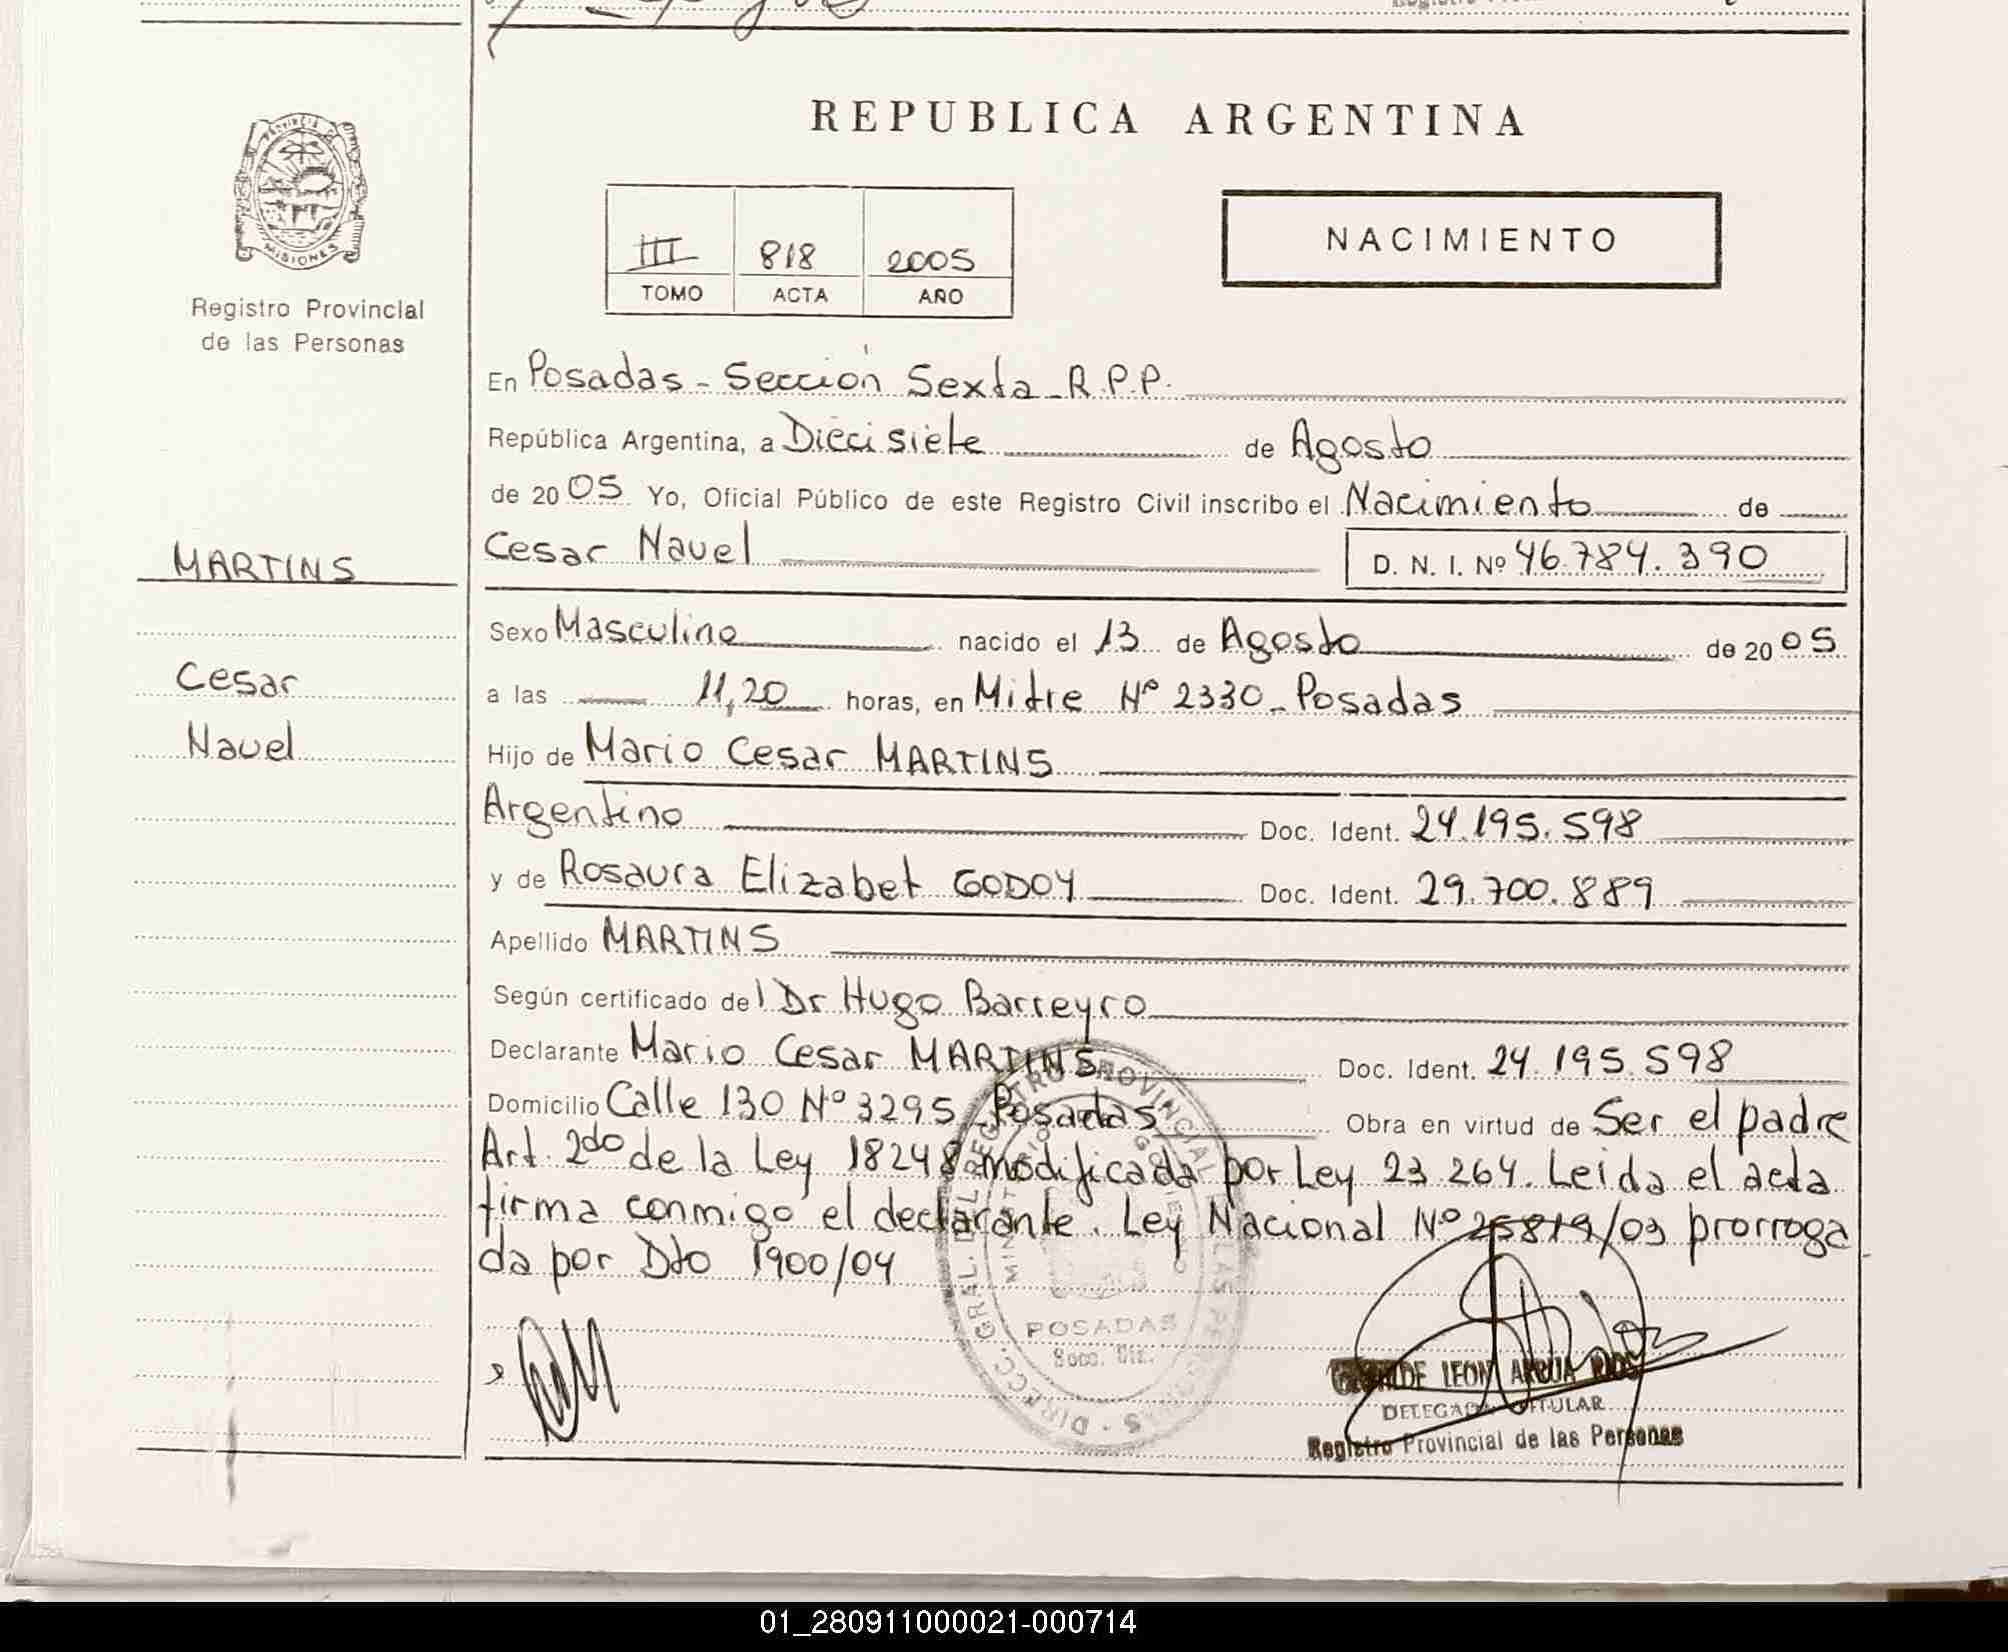 REPUBLICA ARGENTINA
PROVINCIA DE
MISIONES
Registro Provincial
de las Personas
III 818 2005
TOMO ACTA AÑO
NACIMIENTO
En Posadas - Sección Sexta - R.P.P.
República Argentina, a Diecisiete de Agosto
de 2005 Yo, Oficial Público de este Registro Civil inscribo el Nacimiento de
MARTINS
Cesar Nauel D. N. I. Nº 46.784.390
Sexo Masculino nacido el 13 de Agosto de 2005
Cesar
a las 11,20 horas, en Mitre Nº 2330 - Posadas
Nauel
Hijo de Mario Cesar MARTINS
Argentino Doc. Ident. 24.195.598
y de Rosaura Elizabet GODOY Doc. Ident. 29.700.889
Apellido MARTINS
Según certificado del Dr Hugo Barreyro
Declarante Mario Cesar MARTINS Doc. Ident. 24.195.598
Domicilio Calle 130 Nº 3295 - Posadas Obra en virtud de Ser el padre
Art. 2do de la Ley 18248 modificada por Ley 23.264. Leida el acta
firma conmigo el declarante. Ley Nacional Nº 25819/03 prorroga
da por Dto 1900/04
DIRECC. GRAL. DEL REGISTRO PROVINCIAL DE LAS PERSONAS
POSADAS
DE LEON
DELEGADA TITULAR
Registro Provincial de las Personas
01_280911000021-000714